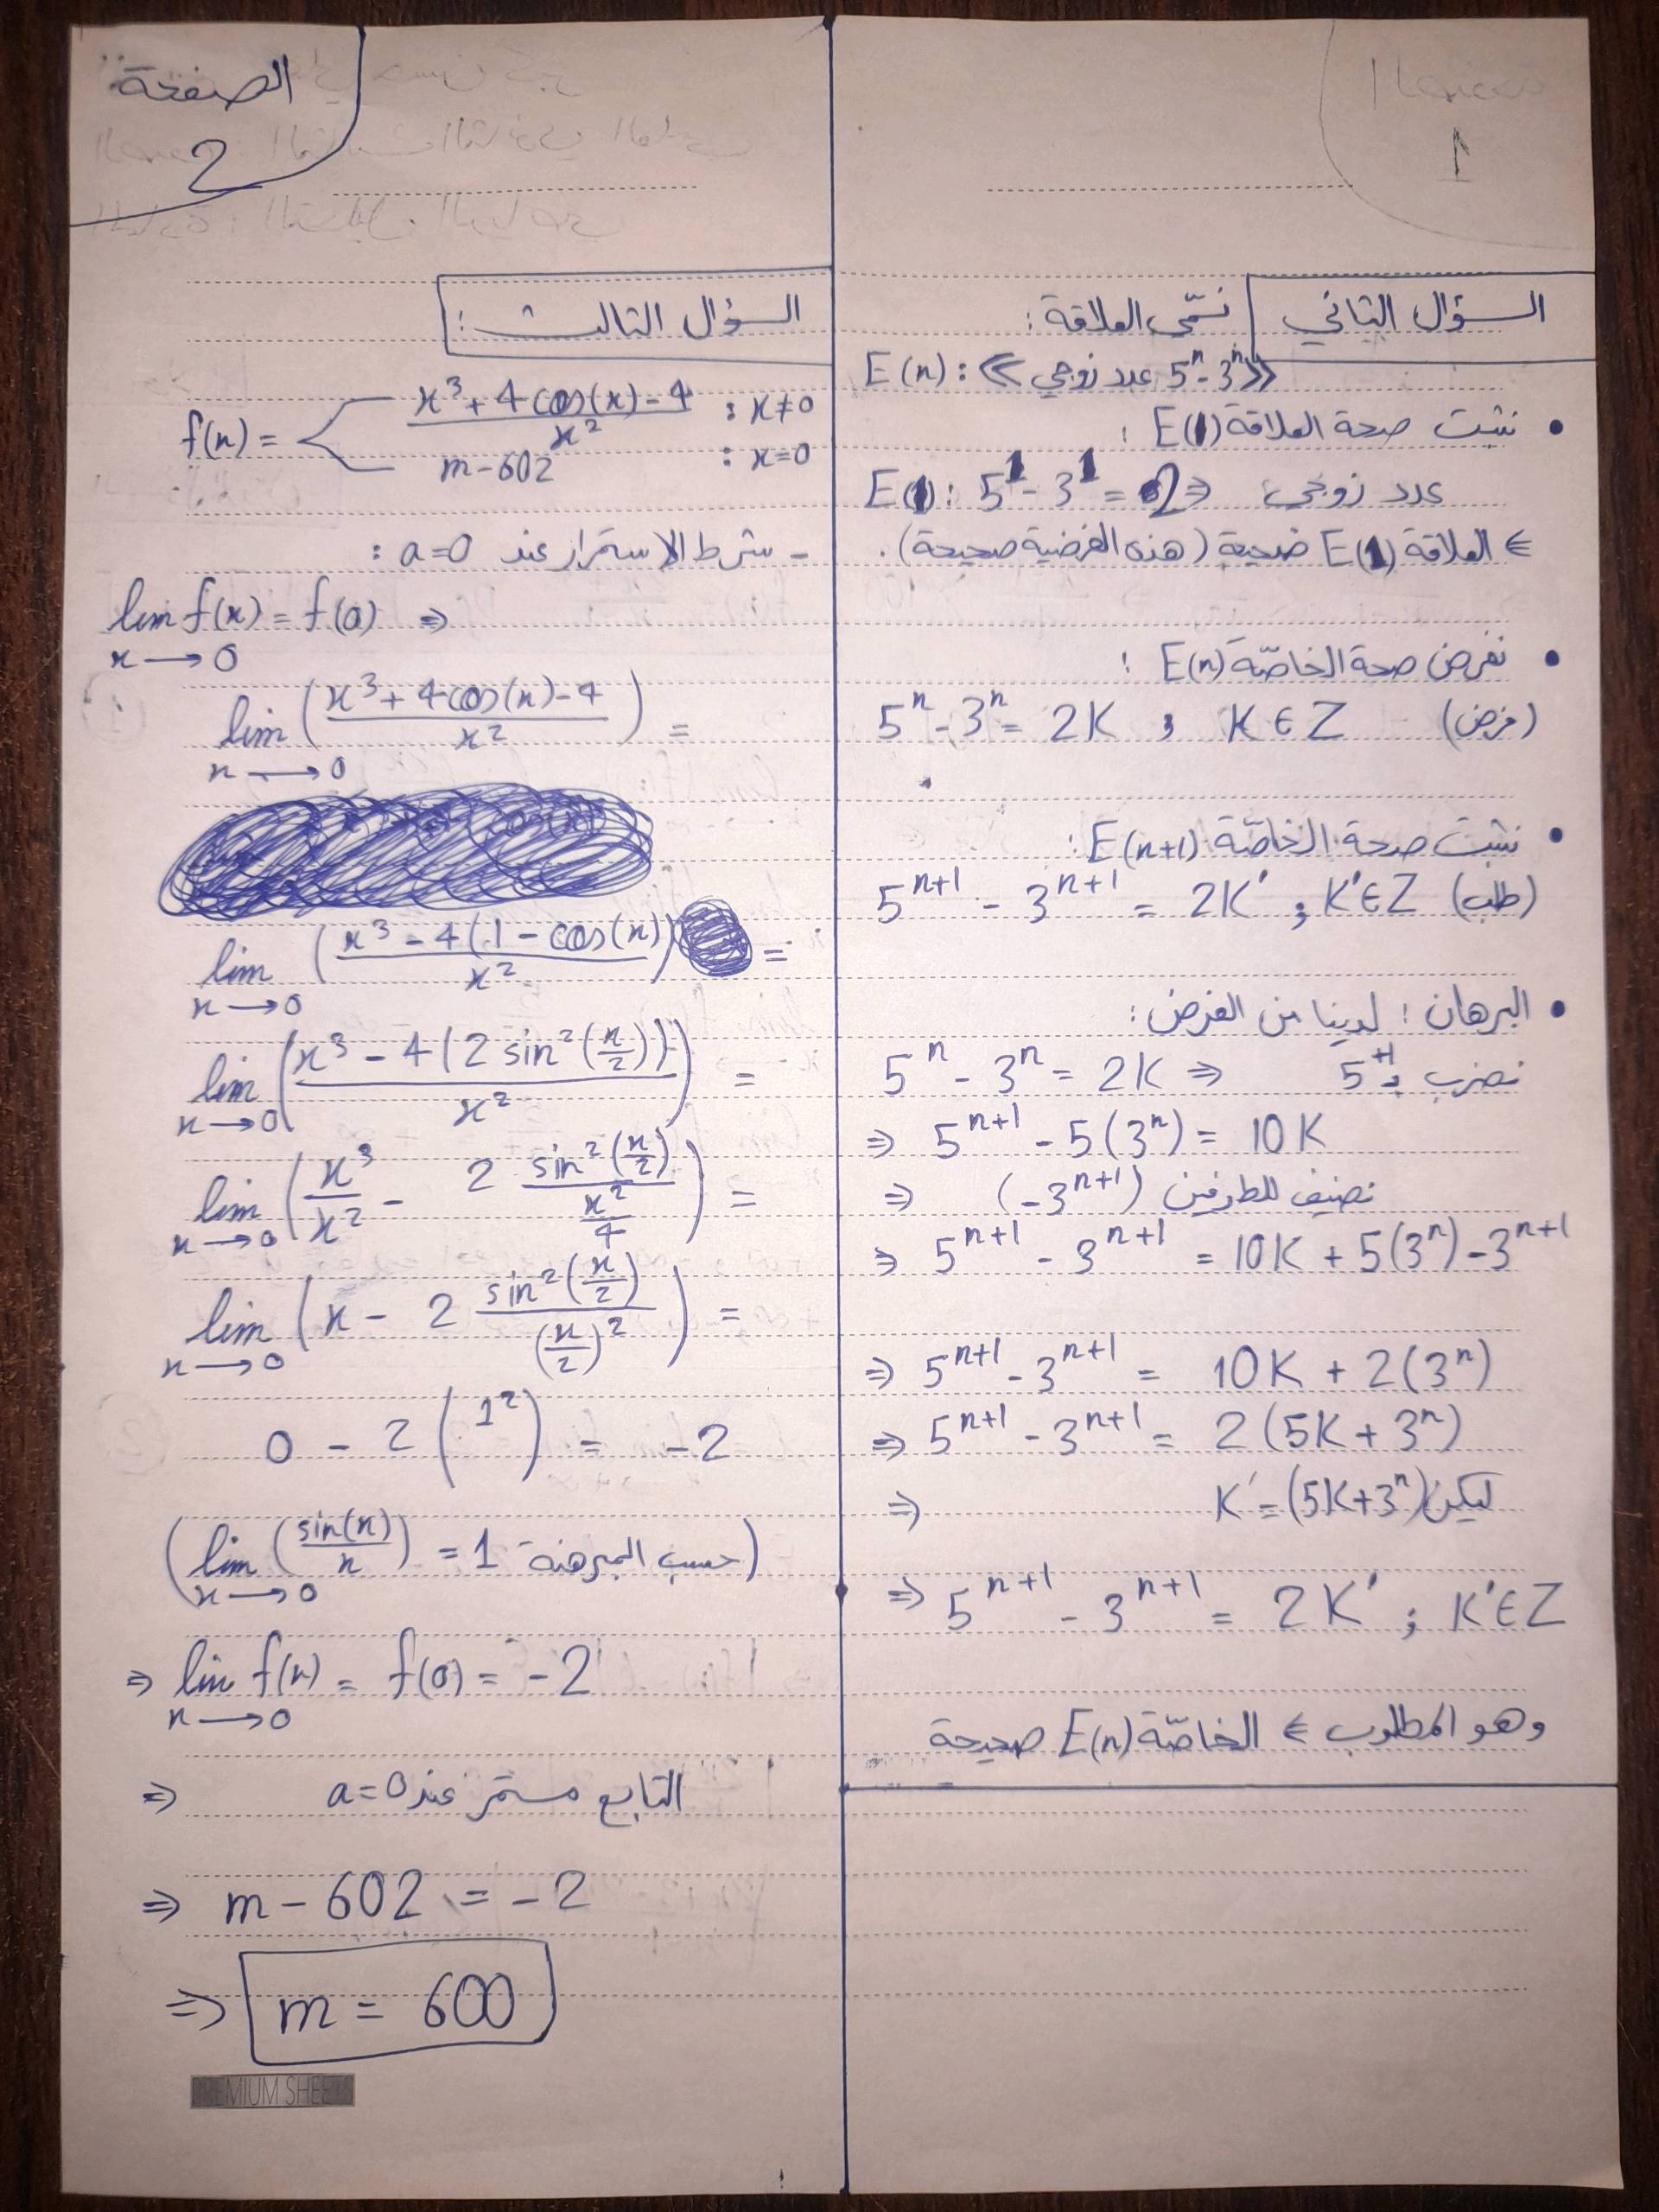 الصفحة
2
السؤال الثاني
نسمّي العلاقة:
E(n): «5^n - 3^n عدد زوجي»
• نثبت صحة العلاقة E(1):
E(1): 5^1 - 3^1 = 2 ⇒ عدد زوجي
⇐ العلاقة E(1) صحيحة (هذه الفرضية صحيحة).
• نفرض صحة الخاصّة E(n):
5^n - 3^n = 2K ; K ∈ Z (فرض)
• نثبت صحة الخاصّة E(n+1):
5^{n+1} - 3^{n+1} = 2K' ; K' ∈ Z (طلب)
• البرهان: لدينا من الفرض:
5^n - 3^n = 2K ⇒ نضرب بـ 5^{+1}
⇒ 5^{n+1} - 5(3^n) = 10K
⇒ نضيف للطرفين (-3^{n+1})
⇒ 5^{n+1} - 3^{n+1} = 10K + 5(3^n) - 3^{n+1}
⇒ 5^{n+1} - 3^{n+1} = 10K + 2(3^n)
⇒ 5^{n+1} - 3^{n+1} = 2(5K + 3^n)
⇒ ليكن K' = (5K + 3^n)
⇒ 5^{n+1} - 3^{n+1} = 2K' ; K' ∈ Z
وهو المطلوب ⇐ الخاصّة E(n) صحيحة
السؤال الثالث:
f(x) = < (x^3 + 4cos(x) - 4)/x^2 : x≠0
m - 602 : x=0
- شرط الاستمرار عند a=0 :
lim_{x→0} f(x) = f(a) ⇒
lim_{x→0} ((x^3 + 4cos(x) - 4)/x^2) =
lim_{x→0} ((x^3 - 4(1 - cos(x))/x^2) =
lim_{x→0} ((x^3 - 4(2 sin^2(x/2)))/x^2) =
lim_{x→0} (x^3/x^2 - 2 sin^2(x/2)/(x^2/4)) =
lim_{x→0} (x - 2 sin^2(x/2)/(x/2)^2) =
0 - 2(1^2) = -2
(lim_{x→0} (sin(x)/x) = 1 حسب المبرهنة)
⇒ lim_{x→0} f(x) = f(0) = -2
⇒ التابع مستمر عند a=0
⇒ m - 602 = -2
⇒ m = 600
PREMIUM SHEE